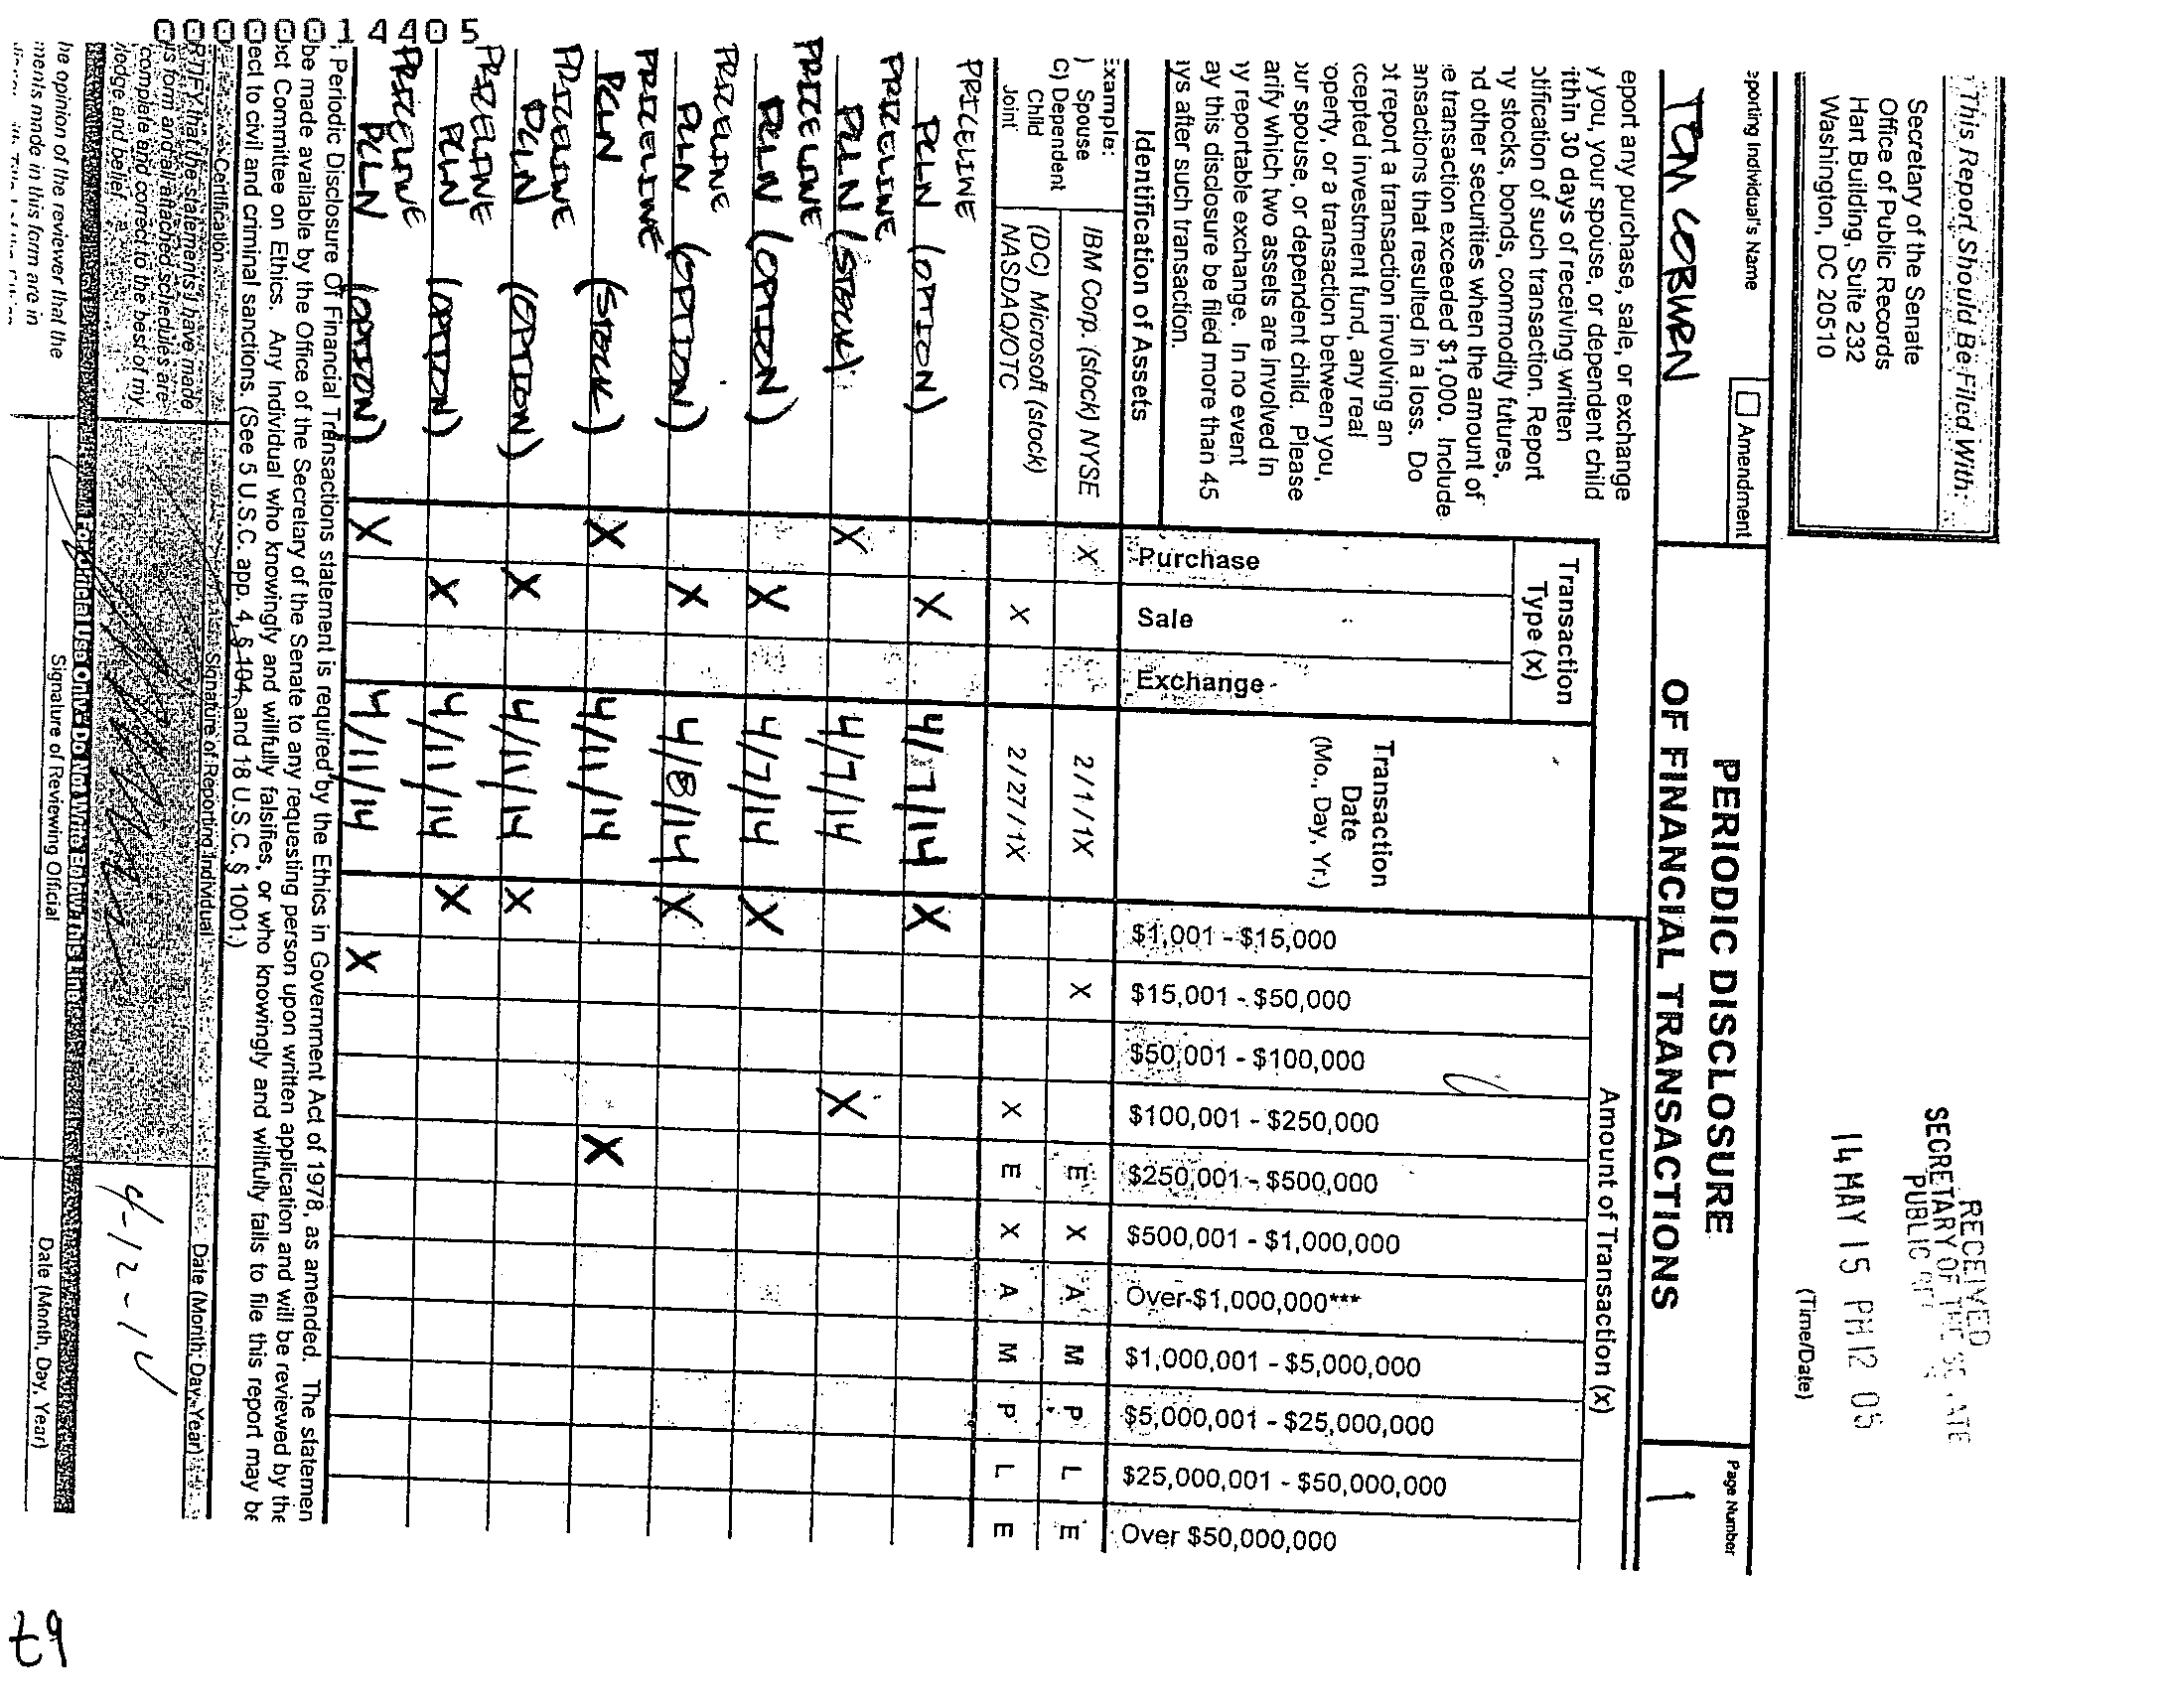 This Report Should Be Filed With:
Secretary of the Senate
Office of Public Records
Hart Building, Suite 232
Washington, DC 20510
RECEIVED
SECRETARY OF THE SENATE
PUBLIC
14 MAY 15 PM 12 05
(Time/Date)
eporting Individual's Name
Amendment
TOM COBURN
PERIODIC DISCLOSURE
OF FINANCIAL TRANSACTIONS
Page Number
1
eport any purchase, sale, or exchange
y you, your spouse, or dependent child
ithin 30 days of receiving written
otification of such transaction. Report
ny stocks, bonds, commodity futures,
nd other securities when the amount of
e transaction exceeded $1,000. Include
ansactions that resulted in a loss. Do
ot report a transaction involving an
xcepted investment fund, any real
operty, or a transaction between you,
our spouse, or dependent child. Please
arify which two assets are involved in
ny reportable exchange. In no event
ay this disclosure be filed more than 45
ays after such transaction.
Identification of Assets
Transaction
Type (x)
Purchase
Sale
Exchange
Transaction
Date
(Mo., Day, Yr.)
Amount of Transaction (x)
$1,001 - $15,000
$15,001 - $50,000
$50,001 - $100,000
$100,001 - $250,000
$250,001 - $500,000
$500,001 - $1,000,000
Over $1,000,000***
$1,000,001 - $5,000,000
$5,000,001 - $25,000,000
$25,000,001 - $50,000,000
Over $50,000,000
Example:
) Spouse
C) Dependent
Child
Joint
IBM Corp. (stock) NYSE X 2/1/1X X E X A M P L E
(DC) Microsoft (stock)
NASDAQ/OTC X 2/27/1X X E X A M P L E
PRICELINE
PCLN (OPTION) X 4/7/14 X
PRICELINE
PCLN (STOCK) X 4/7/14 X
PRICELINE
PCLN (OPTION) X 4/7/14 X
PRICELINE
PCLN (OPTION) X 4/8/14 X
PRICELINE
PCLN (STOCK) X 4/11/14 X
PRICELINE
PCLN (OPTION) X 4/11/14 X
PRICELINE
PCLN (OPTION) X 4/11/14 X
PRICELINE
PCLN (OPTION) X 4/11/14 X
Periodic Disclosure Of Financial Transactions statement is required by the Ethics in Government Act of 1978, as amended. The statemen
be made available by the Office of the Secretary of the Senate to any requesting person upon written application and will be reviewed by the
ct Committee on Ethics. Any Individual who knowingly and willfully falsifies, or who knowingly and willfully fails to file this report may be
ect to civil and criminal sanctions. (See 5 U.S.C. app. 4, § 104, and 18 U.S.C. § 1001.)
Certification
Signature of Reporting Individual
Date (Month, Day, Year)
RTIFY that the statements I have made
s form and all attached schedules are
complete and correct to the best of my
ledge and belief.
4-12-14
For Official Use Only - Do Not Write Below This Line
he opinion of the reviewer that the
ments made in this form are in
Signature of Reviewing Official
Date (Month, Day, Year)
000000014405
67